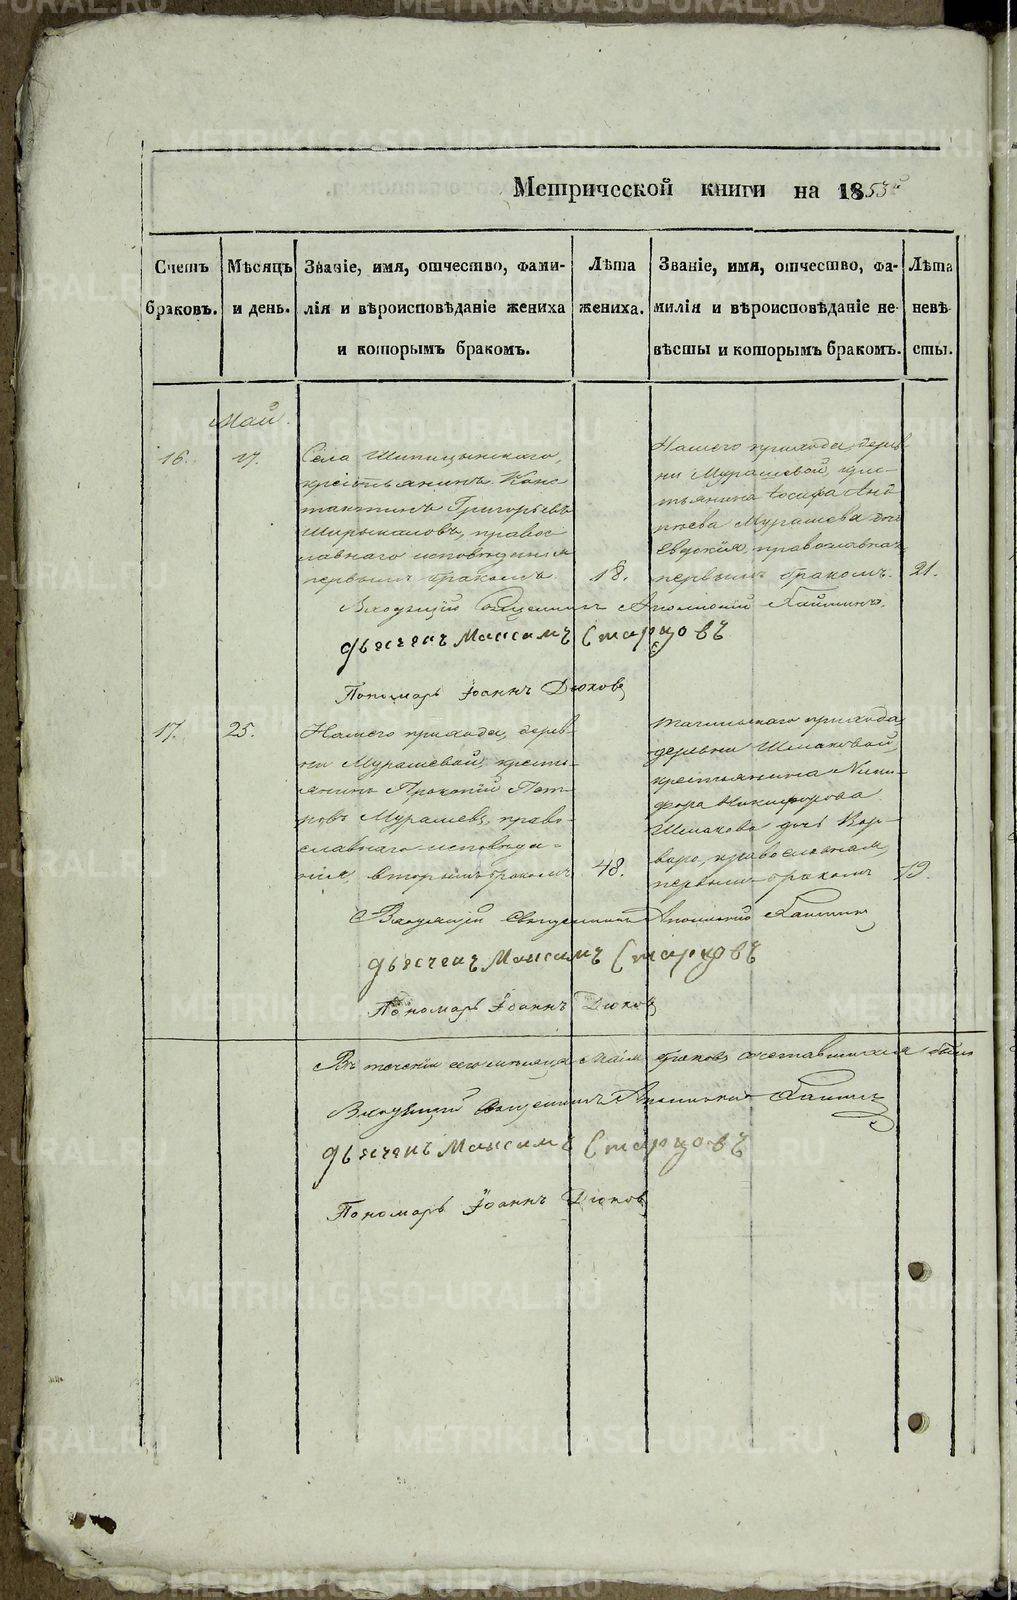 Метрической книги на 1853й
Счетъ браковъ.
Мѣсяцъ и день.
Званіе, имя, отчество, фами-
лія и вѣроисповѣданіе жениха
и которымъ бракомъ.
Лѣта жениха.
Званіе, имя, отчество, фа-
милія и вѣроисповѣданіе не-
вѣсты и которымъ бракомъ.
Лѣта невѣ-
сты.
Май.
16.
17.
Села Шипицынскаго,
крестьянинъ Конс
тантинъ Григорьевъ
православ
лавнаго исповѣданія
первымъ бракомъ.
18.
Нашего прихода, дерев
ни Мурашевой, крес-
тьянина Іосифа Анд
реева Мурашева дочь
Евдокія, православная
первымъ бракомъ.
21.
Священникъ
дьячекъ Максимъ Старцовъ
Пономарь Іоаннъ Дюковъ
17.
25.
Нашего прихода, дерев-
ни Мурашевой, кресть-
янинъ Прокопій Пет-
ровъ Мурашевъ, право-
славнаго исповѣда-
нія, вторымъ бракомъ
48.
прихода,
деревни Шмаковой,
крестьянина Ники-
фора Никифорова
Шмакова дочь Вар-
вара, православная,
первымъ бракомъ
19.
Священникъ
дьячекъ Максимъ Старцовъ
Пономарь Іоаннъ Дюковъ
Въ теченіи сего мѣсяца Маія браковъ сочетавшихся было
Священникъ
дьячекъ Максимъ Старцовъ
Пономарь Іоаннъ Дюковъ
METRIKI.GASO-URAL.RU